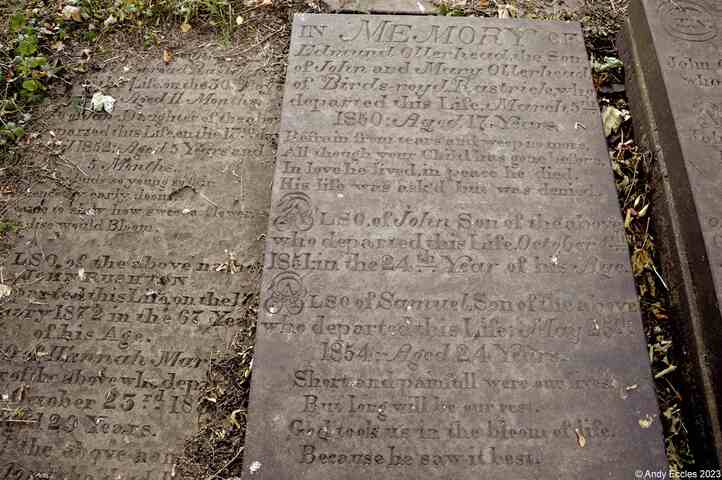 Life, on the 30th
Aged 11 Months.
Daughter of the abo
parted this Life, on the 17th day
1852: Aged 5 Years and
5 Months.
so young so fair
early doom
to show how sweet a flower
ise would Bloom.
LSO, of the above na
JOHN RUSHTON
parted this Life, on the 17
uary 1872 in the 67 Year
of his Age.
of Hannah Mar
r of the above who depa
October 23rd 18
29 Years.
the above
IN MEMORY OF
Edmund Otterhead, the Son
of John and Mary Otterhead
of Birds-royd, Rastrick, who
departed this Life, March 5th
1850: Aged 17 Years.
Refrain from tears and weep no more,
All though your Child has gone before,
In love he lived, in peace he died.
His life was ask'd but was denied.
ALSO, of John Son of the above
who departed this Life, October
1851: in the 24th Year of his Age.
ALSO of Samuel, Son of the above
who departed this Life; May 25th
1854: Aged 24 Years.
Short and painfull were our lives
But long will be our rest.
God took us in the bloom of life,
Because he saw it best.
John
who
© Andy Eccles 2023